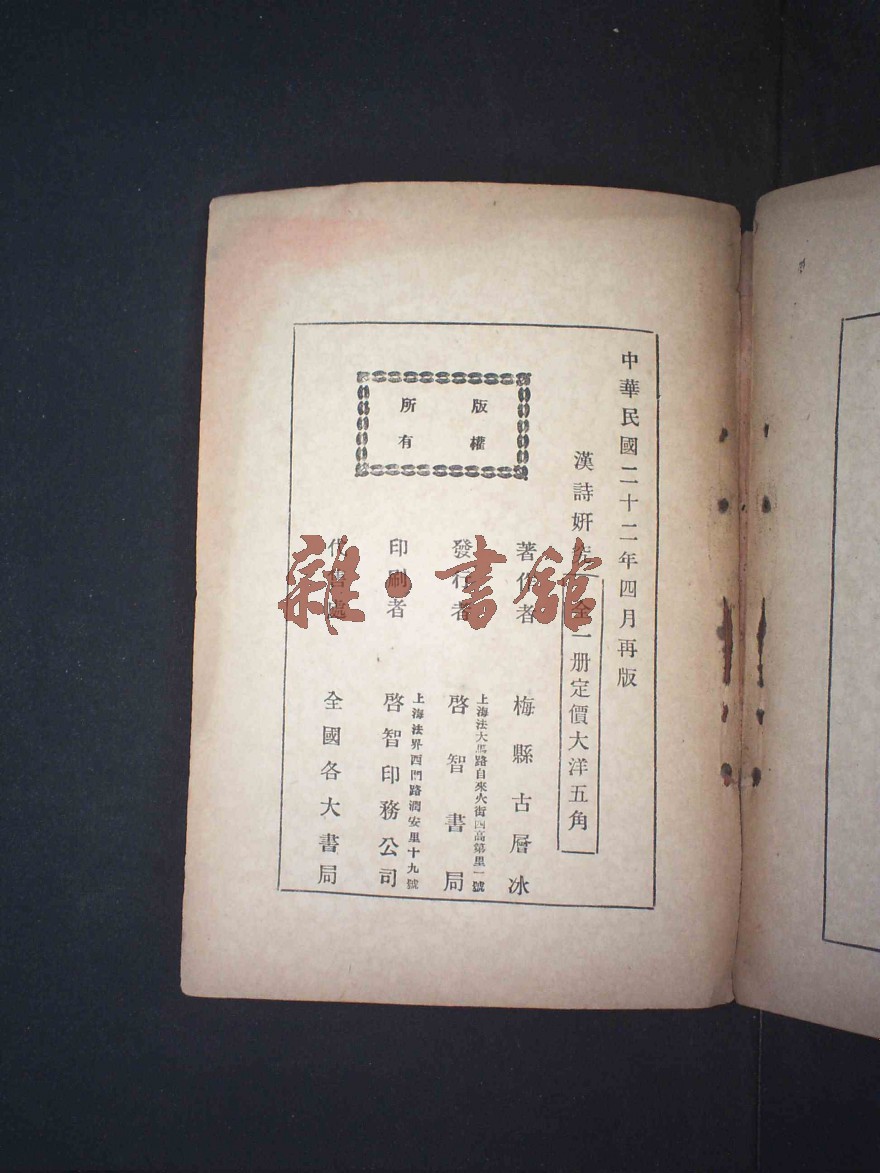 中華民國二十二年四月再版
漢詩姸究
全一册定價大洋五角
版權
所有
著作者
梅縣古層冰
發行者
上海法大馬路自來火街西高第里一號
啓智書局
印刷者
上海法界西門路潤安里十九號
啓智印務公司
代售處
全國各大書局
雜·書館